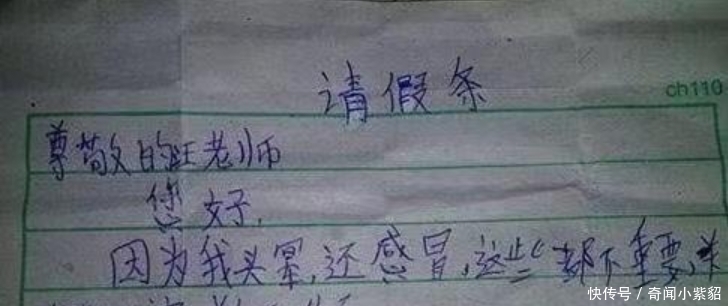 请假条
ch110
尊敬的汪老师
您好,
因为我头晕,还感冒,这些都不重要,关
快传号/奇闻小紫貂